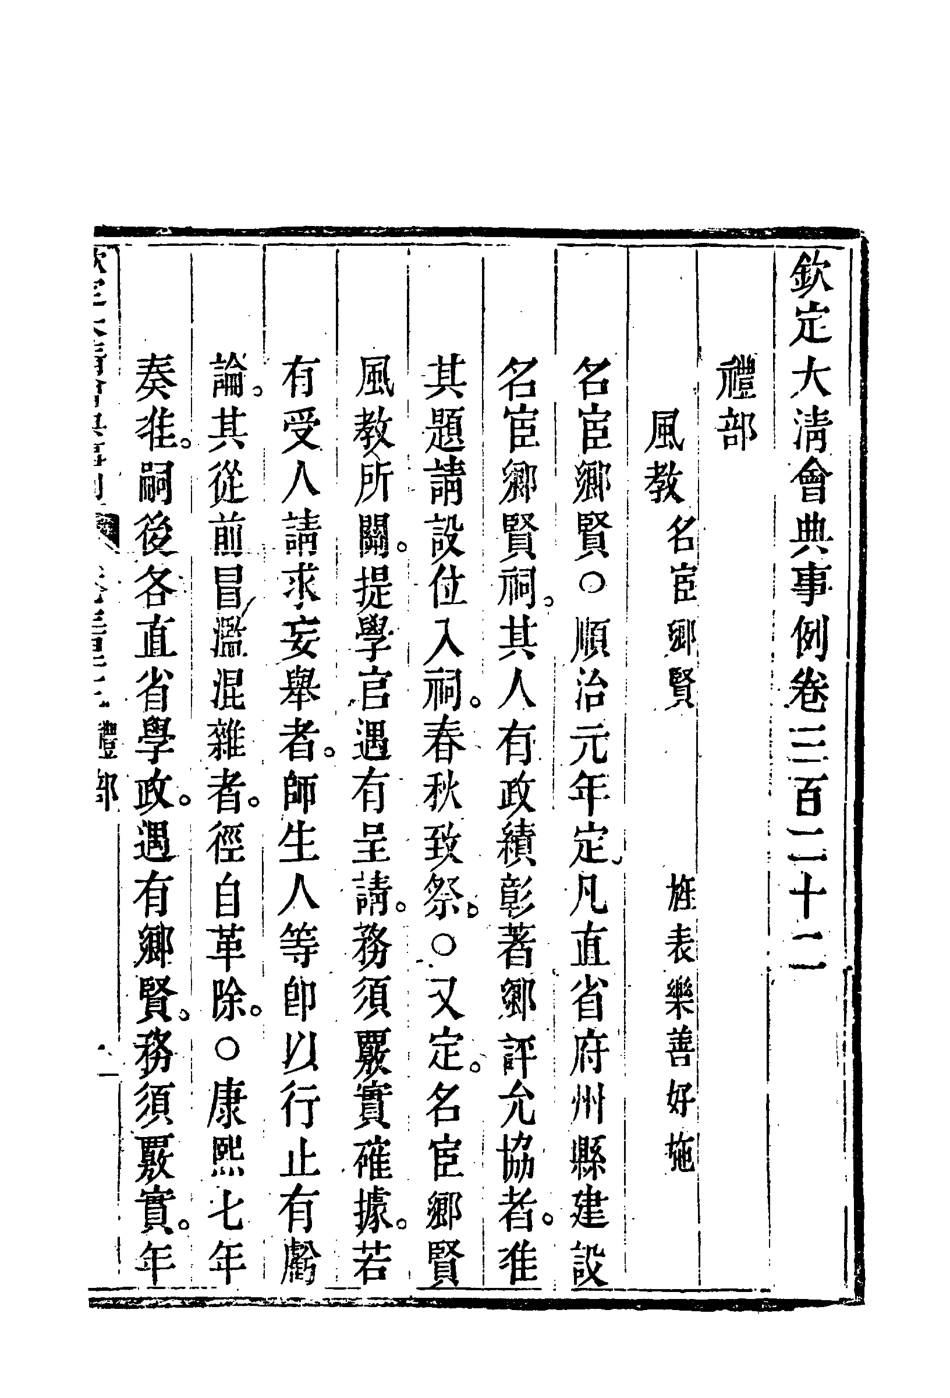 欽定大清會典事例卷三百二十二
禮部
風教 名宦鄉賢 旌表樂善好施
名宦鄉賢○順治元年定凡直省府州縣建設
名宦鄉賢祠。其人有政績彰著鄉評允協者。准
其題請設位入祠。春秋致祭。○又定。名宦鄉賢
風教所關。提學官遇有呈請。務須覈實確據。若
有受人請求妄舉者。師生人等卽以行止有虧
論。其從前冒濫混雜者。徑自革除。○康熙七年
奏准。嗣後各直省學政。遇有鄉賢。務須覈實。年